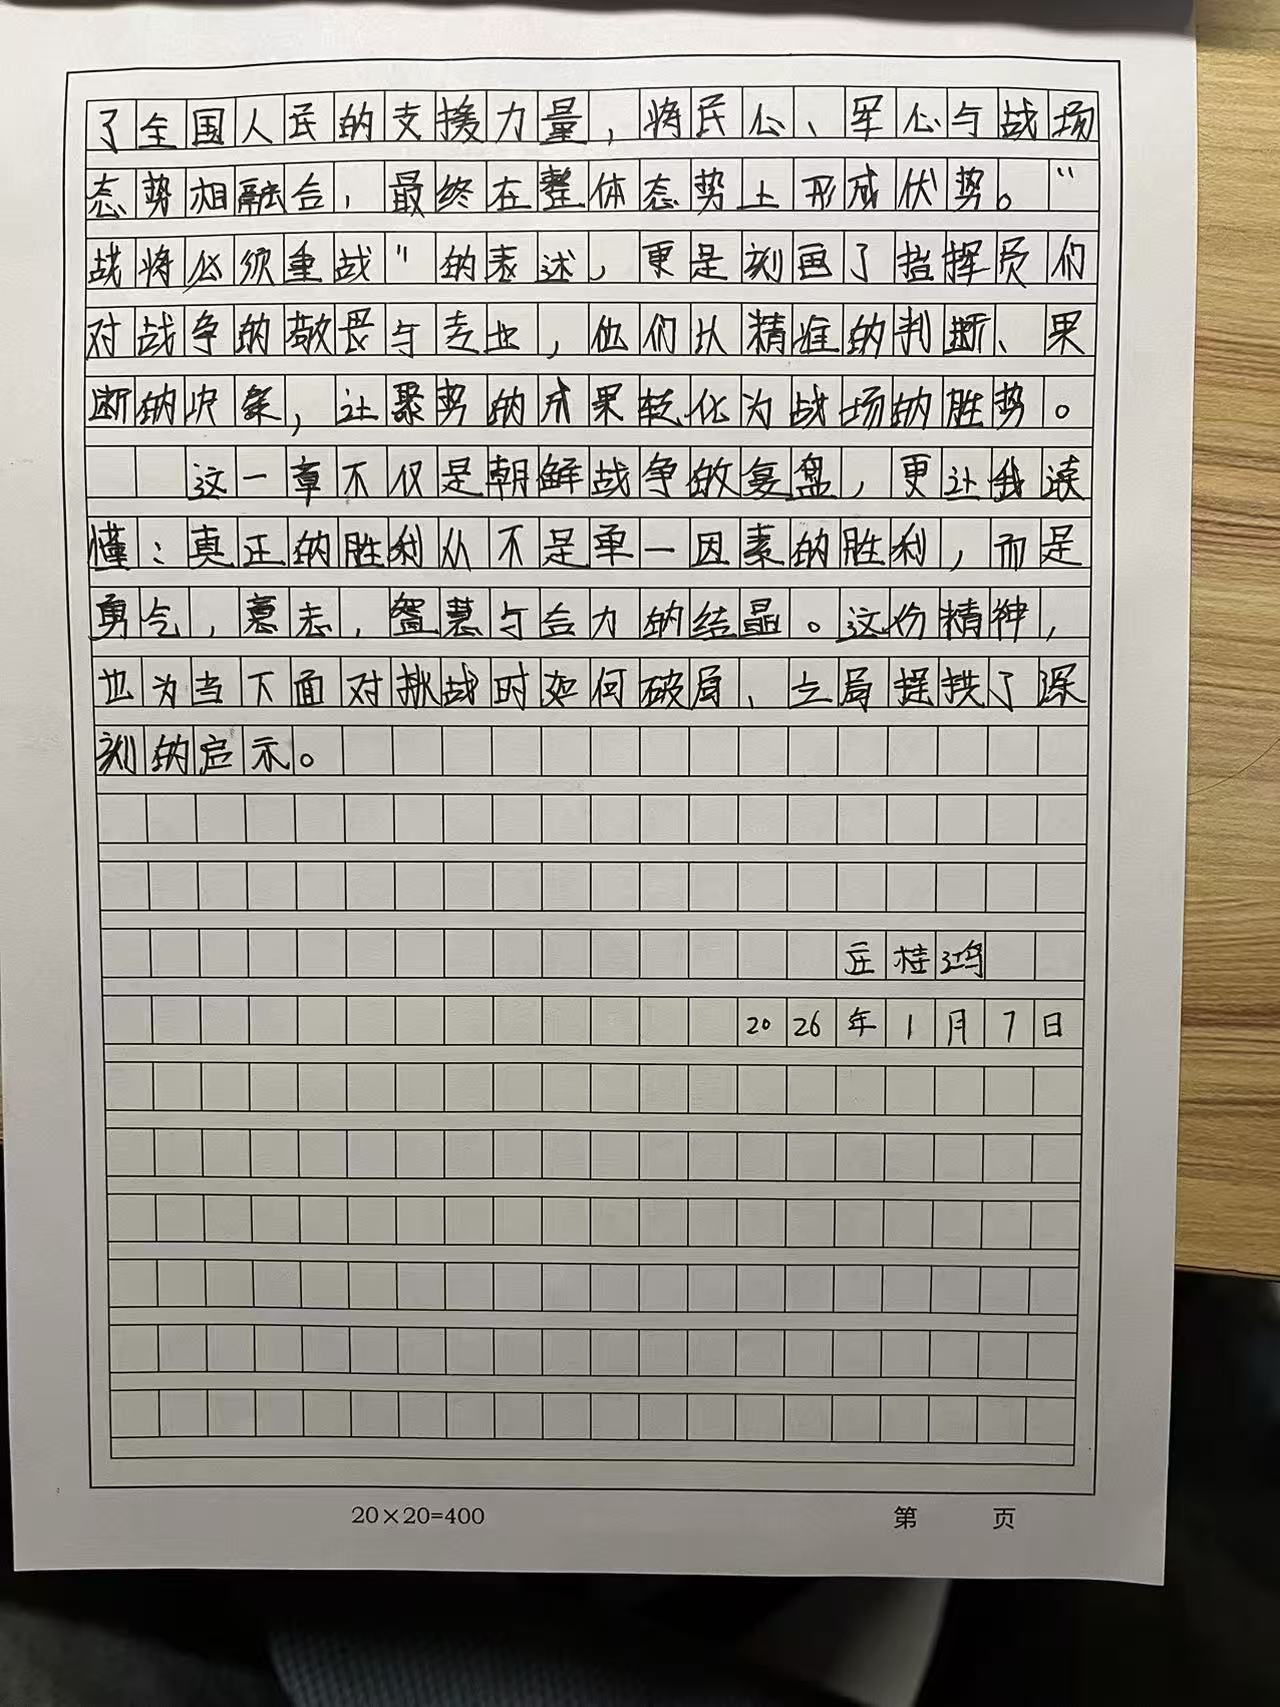 了全国人民的支援力量，将民心、军心与战场
态势相融合，最终在整体态势上形成伏势。“
战将必须重战”的表述，更是刻画了指挥员们
对战争的敬畏与专业，他们以精准的判断、果
断的决策，让聚势的成果转化为战场的胜势。
这一章不仅是朝鲜战争的复盘，更让我读
懂：真正的胜利从不是单一因素的胜利，而是
勇气，意志，智慧与合力的结晶。这份精神，
也为当下面对挑战时如何破局、立局提供了深
刻的启示。
庄桂鸿
2026年1月7日
20×20=400 第 页